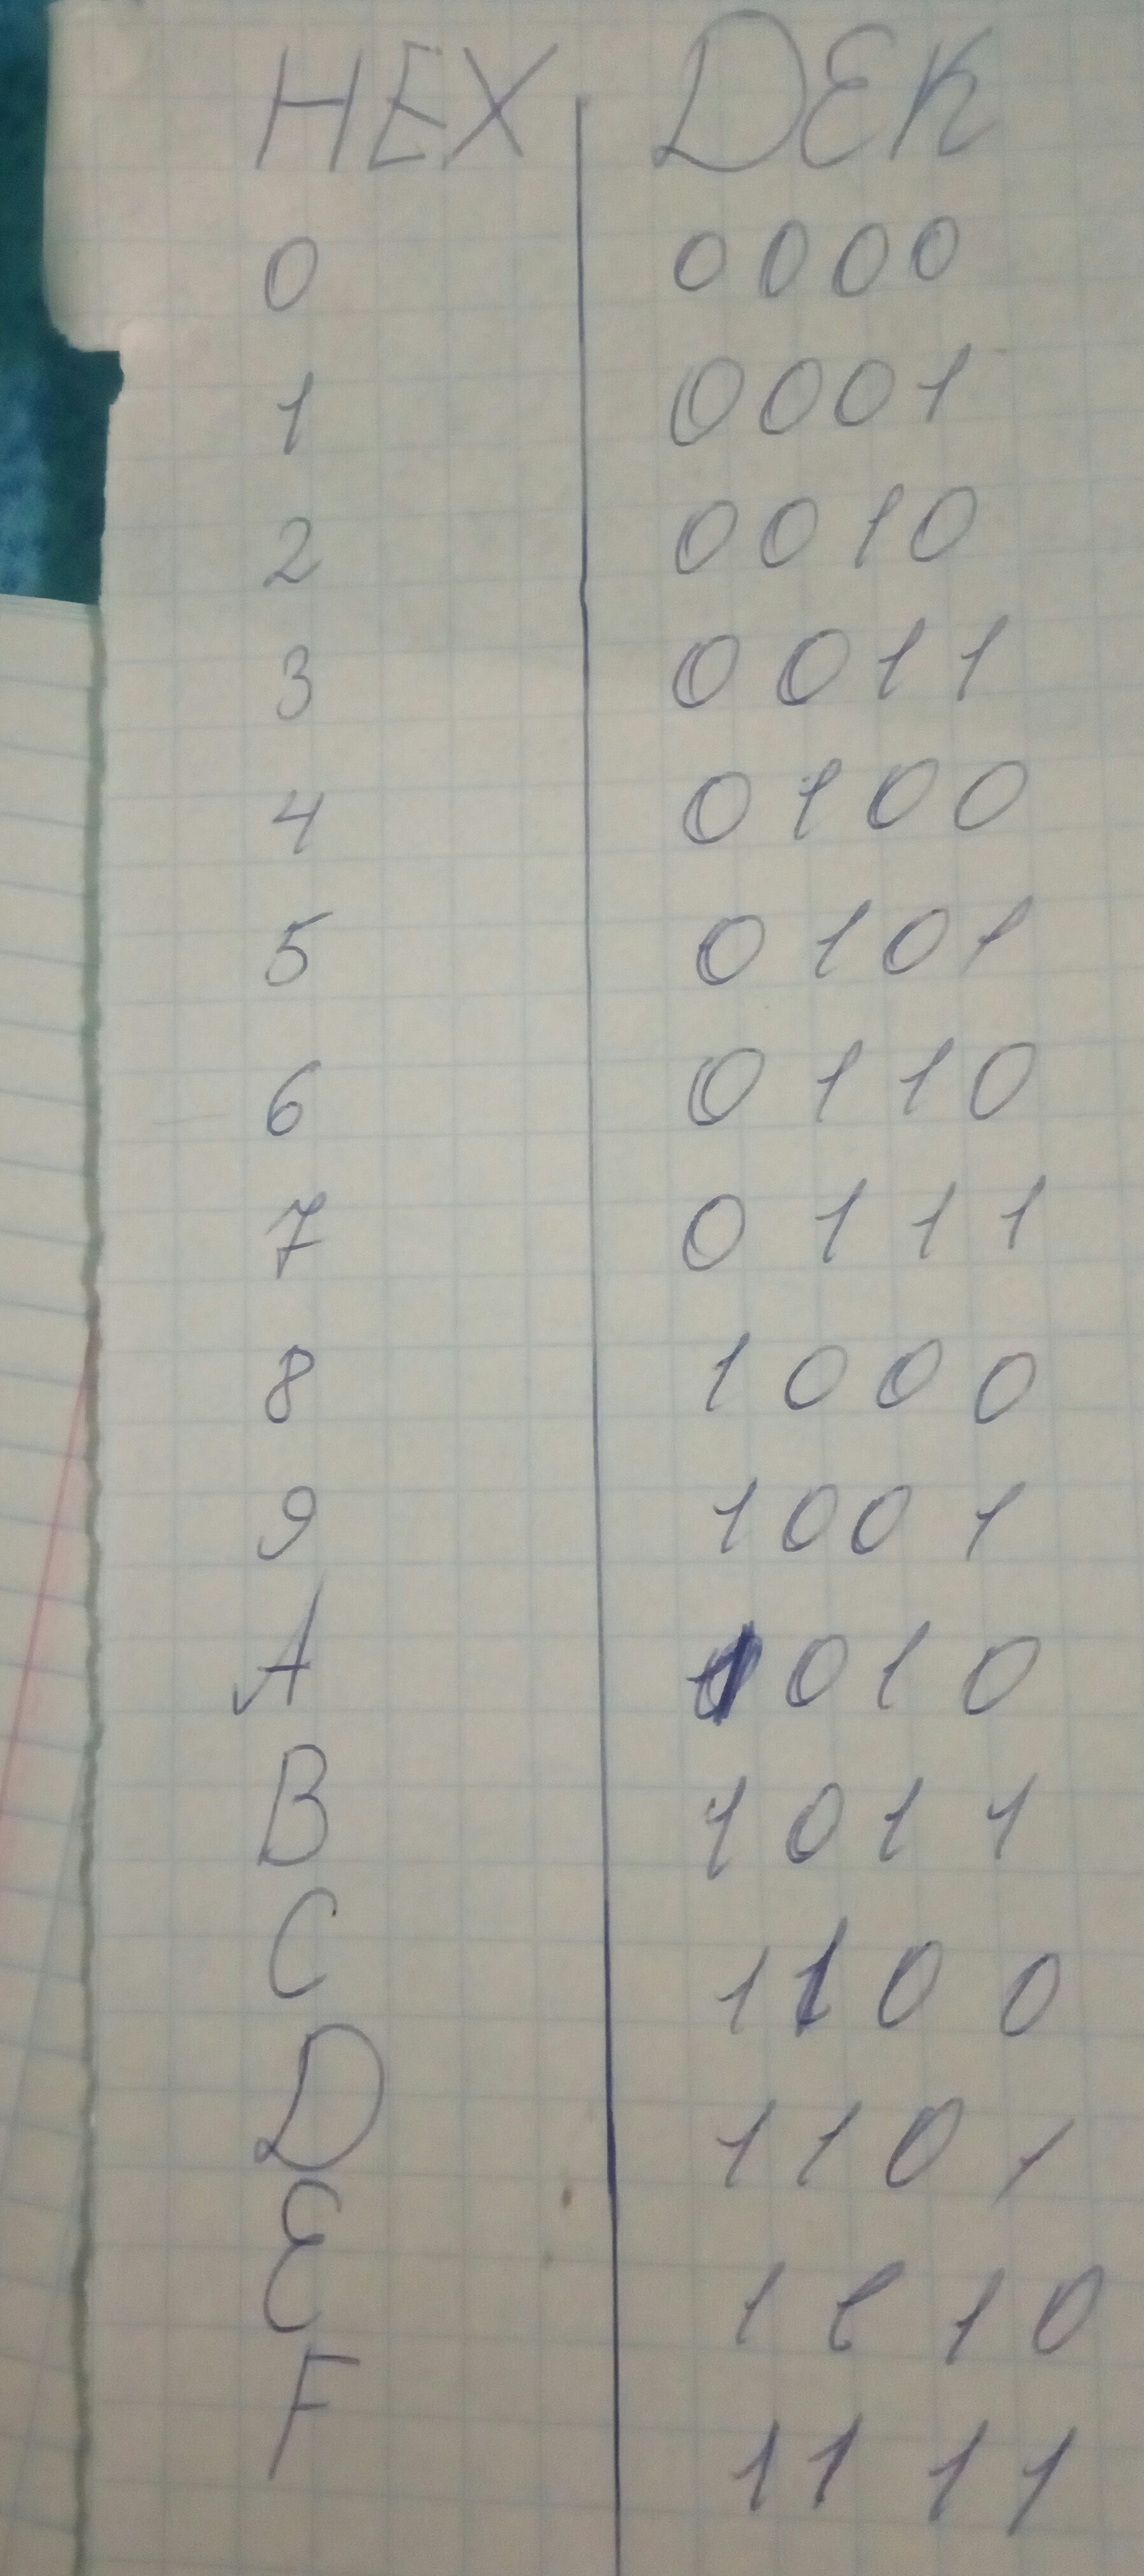 HEX DEK
0 0000
1 0001
2 0010
3 0011
4 0100
5 0101
6 0110
7 0111
8 1000
9 1001
A 1010
B 1011
C 1100
D 1101
E 1110
F 1111